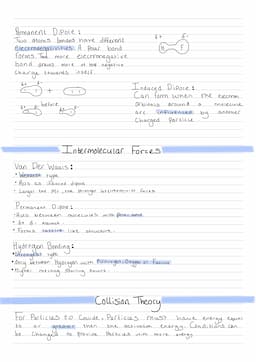 Permanent Dipole:
Two atoms bonded have different
electronegativities. A Polar bond
forms. The more electronegative
bond draws more of the negative
charge towards itself.
δ+ δ-
H F
Induced Dipole:
Can form when the electron
orbitals around a molecule
are influenced by another
charged Particle.
Intermolecular Forces
Van Der Waals:
• Weakest type.
• Acts as induced dipole
• Larger the Mr, the stronger intermolecular forces
Permanent Dipole:
• Acts between molecules with Polar bond
• δ+ δ-
• Forms lattice like structure.
Hydrogen Bonding:
• Strongest type.
• Only between Hydrogen with Nitrogen, Oxygen or Fluorine
• Higher melting / boiling points.
Collision Theory
For Particles to Collide, Particles must have energy equal
to or greater than the activation energy. Conditions can
be changed to provide Particles with more energy.